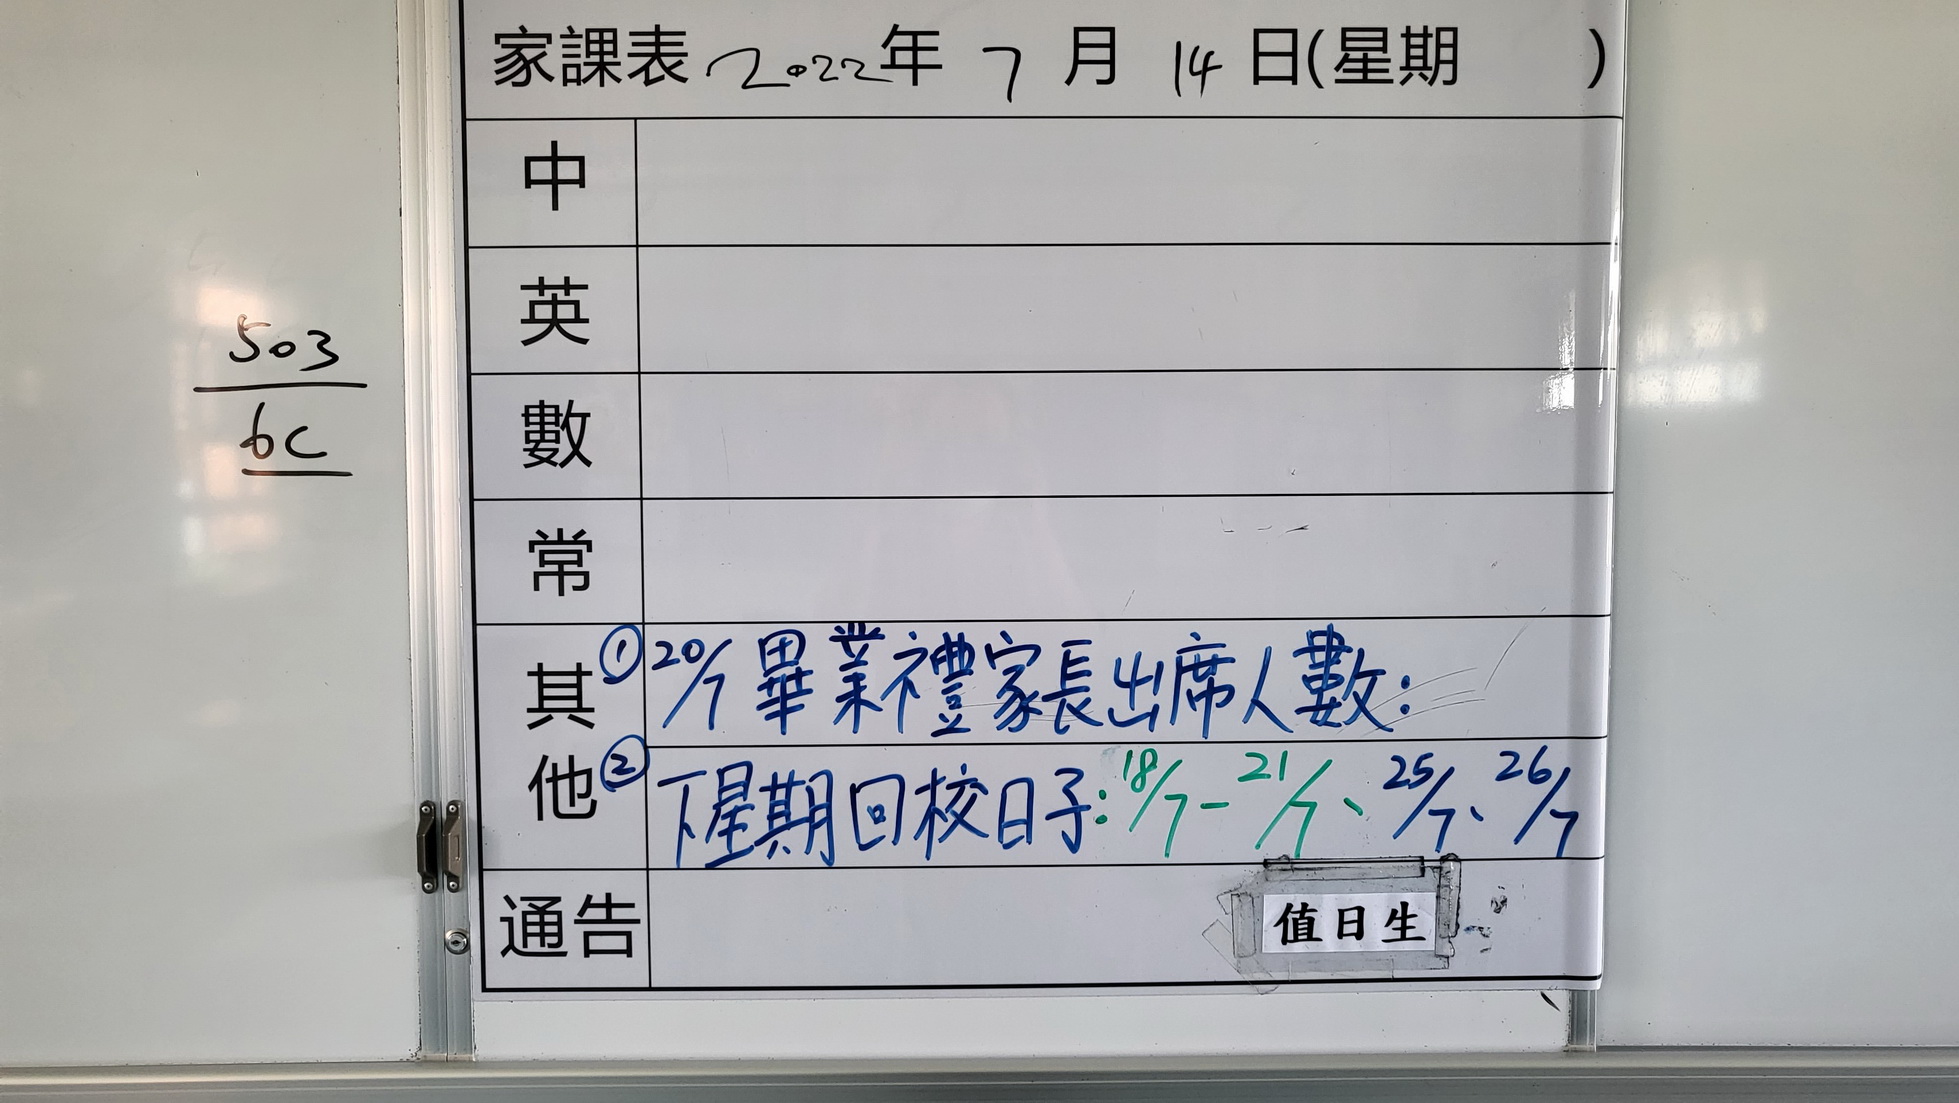 家課表 2022年 7 月 14 日(星期 )
503
6C
中
英
數
常
其他
① 20/7 畢業禮家長出席人數:
② 下星期回校日子:18/7-21/7、25/7、26/7
通告
值日生